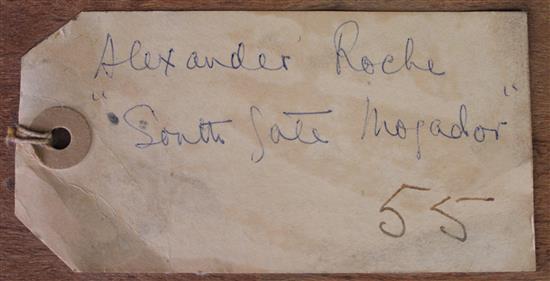 Alexander Roche
"South Gate Mogador"
55